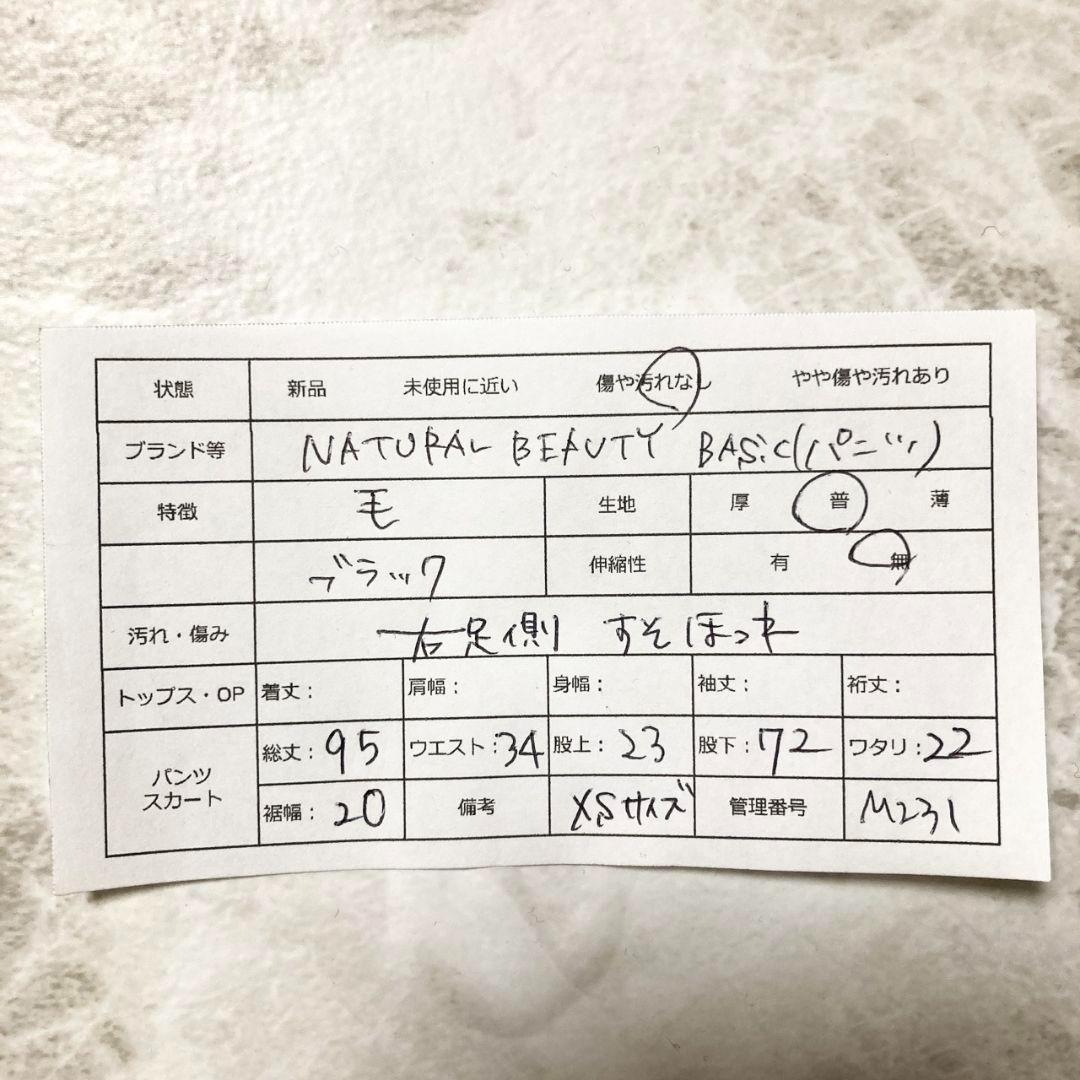 状態 新品 未使用に近い 傷や汚れなし やや傷や汚れあり
ブランド等 NATURAL BEAUTY BASiC(パンツ)
特徴 毛 生地 厚 普 薄
ブラック 伸縮性 有 無
汚れ・傷み 右足側 すそほつれ
トップス・OP 着丈: 肩幅: 身幅: 袖丈: 裄丈:
パンツ スカート 総丈:95 ウエスト:34 股上:23 股下:72 ワタリ:22
裾幅:20 備考 XSサイズ 管理番号 M231